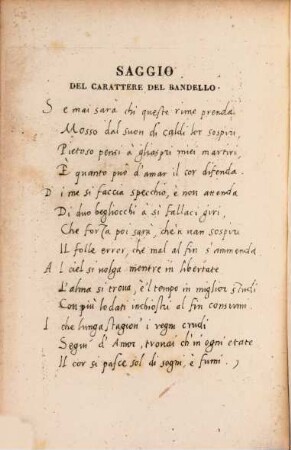 SAGGIO
DEL CARATTERE DEL BANDELLO
S e mai sarà chi queste rime prenda
Mosso dal suon di caldi lor sospiri,
Pietoso pensi à gliaspri miei martiri,
È quanto può d'amar il cor difenda.
D i me si faccia specchio, è non attenda
Di duo begliocchi à si fallaci giri,
Che forza poi sarà, che'n van sospiri
Il folle error, che mal al fin s'ammenda.
A l ciel si volga mentre in libertate
L'alma si trova, è'l tempo in miglior studi
Con più lodati inchiostri al fin consumi.
I che lunga stagion' i regni crudi
Seguìn d'Amor, trovai ch'in ogni etate
Il cor si pasce sol di sogni, è fumi.